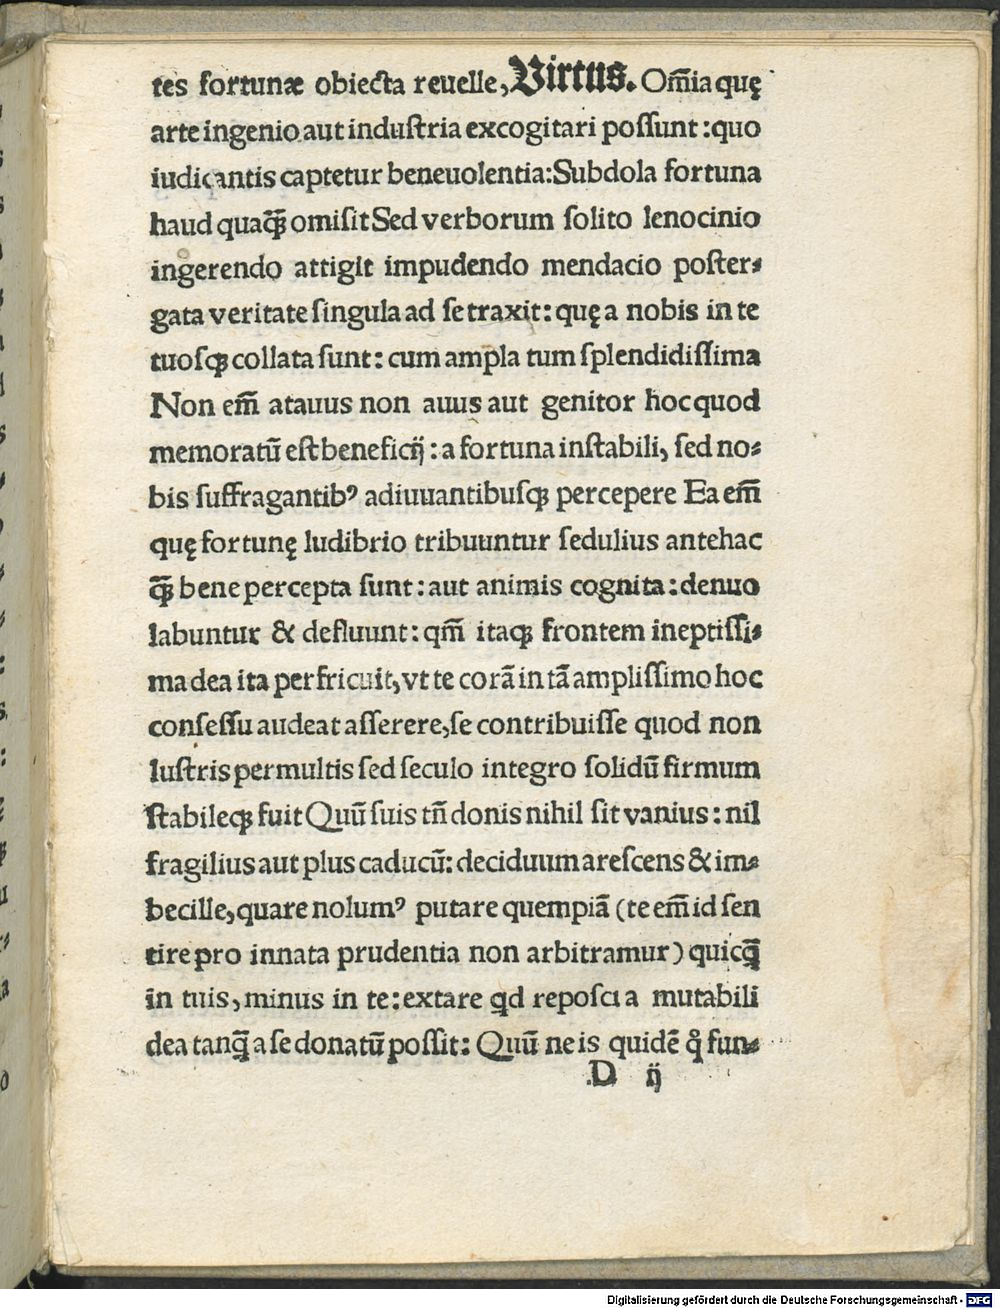 tes fortunæ obiecta reuelle, Virtus. Om̄ia quę
arte ingenio aut induſtria excogitari poſſunt: quo
iudicantis captetur beneuolentia: Subdola fortuna
haud quaꝗ̃ omiſit Sed verborum ſolito lenocinio
ingerendo attigit impudendo mendacio poſter⸗
gata veritate ſingula ad ſe traxit: quę a nobis in te
tuoſꝗ collata ſunt: cum ampla tum ſplendidiſſima
Non em̄ atauus non auus aut genitor hoc quod
memoratū eſt beneficij: a fortuna inſtabili, ſed no⸗
bis ſuffragantibꝰ adiuuantibuſꝗ percepere Ea em̄
quę fortunę ludibrio tribuuntur ſedulius antehac
ꝗ̃ bene percepta ſunt: aut animis cognita: denuo
labuntur & defluunt: qm̄ itaꝗ frontem ineptiſſi⸗
ma dea ita perfricuit, vt te corā in tā ampliſſimo hoc
conſeſſu audeat aſſerere, ſe contribuiſſe quod non
luſtris permultis ſed ſeculo integro ſolidū firmum
ſtabileꝗ fuit Quū ſuis tn̄ donis nihil ſit vanius: nil
fragilius aut plus caducū: deciduum areſcens & im⸗
becille, quare nolumꝰ putare quempiā (te em̄ id ſen
tire pro innata prudentia non arbitramur) quicꝗ̃
in tuis, minus in te: extare qd repoſci a mutabili
dea tanꝗ̃ a ſe donatū poſſit: Quū ne is quidē ꝗ fun⸗
D ij
Digitalisierung gefördert durch die Deutsche Forschungsgemeinschaft - DFG